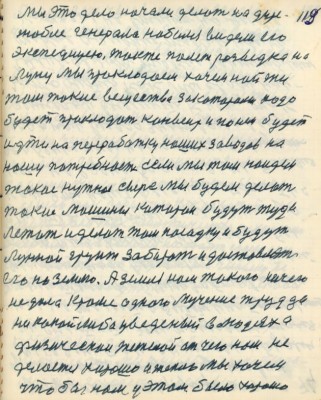 мы это дело начали делат на дир-
жобле генерала Нобиля видели его 119
експедицею, такте полет розведка на
Луну мы прокладаем хочем найти
там такие вещества за которам надо
будет прокладат конвеир и потом будет
идти на переработку наших заводов на
нашу потребность если мы там найдем
такое нужное сыре мы будем делат
такие машины катораи будут туда
летат и делат там посадку и будут
Лунной грунт забират и доставлят
его на землю. А земля нам такого ничего
не дала Кроме одного мучение труда
никакой либо уведеный в людях а
физически тяжолой от чего нам не
делается хорошо и теперь мы хочем
что бы нам у этом было хорошо